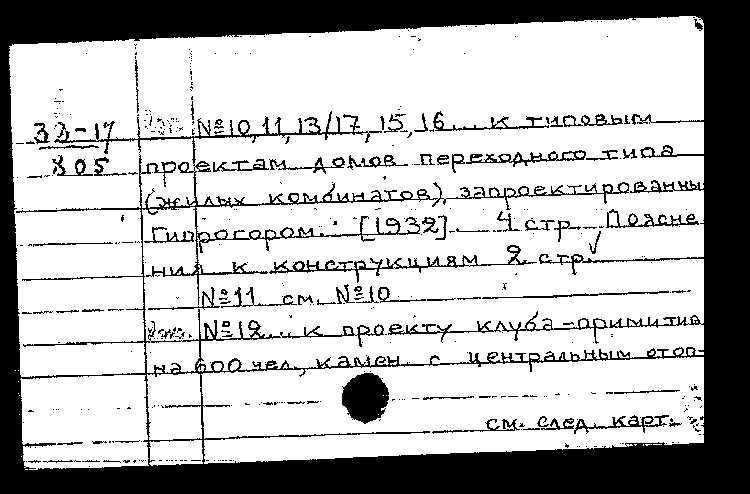 32-17 №10, 11, 13/17, 15, 16... к типовым
805 проектам домов переходного типа
(жилых комбинатов), запроектированны
Гипрогором. [1932]. 4 стр. Поясне
ния к конструкциям 2 стр.
№11 см. №10
№12... к проекту клуба-примитив
на 600 чел., камен. с центральным отоп-
см. след. карт.